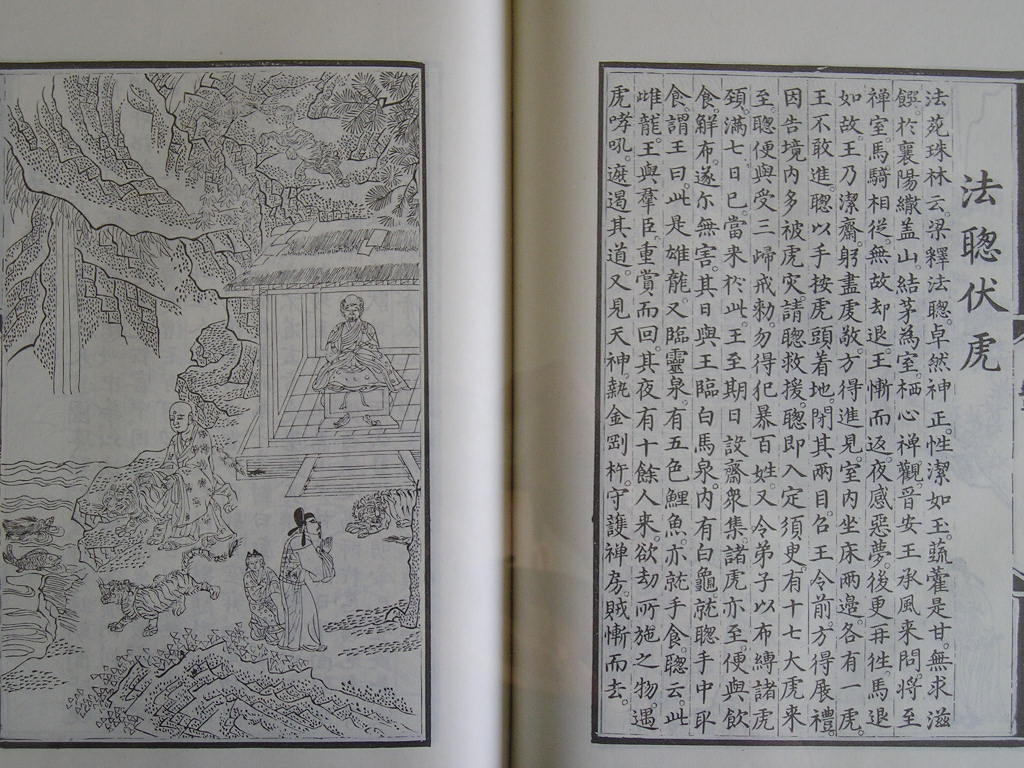 法聦伏虎
法苑珠林云。梁釋法聦。卓然神正。性潔如玉。蔬藿是甘。無求滋
饌。於襄陽繖盖山。結茅為室。栖心禅觀。晋安王承風来問。将至
禅室。馬騎相従。無故却退。王慚而返。夜感惡夢。後更再往。馬退
如故。王乃潔齋。躬盡虔敬。方得進見。室内坐床两邉。各有一虎。
王不敢進。聦以手按虎頭着地。閉其两目。召王令前。方得展禮。
因告境内多被虎灾。請聦救援。聦即入定須臾。有十七大虎来
至。聦便與受三歸戒勑。勿得犯暴百姓。又令弟子以布縛諸虎
頚。満七日已。當来於此。王至期日設齋衆集。諸虎亦至。便與飲
食解布。遂尓無害。其日與王臨白馬泉。内有白龜就聦手中取
食。謂王曰。此是雄龍。又臨靈泉。有五色鯉魚。亦就手食。聦云。此
雌龍。王與羣臣。重賞而回。其夜有十餘人来。欲刧所施之物。遇
虎哮吼。遮遏其道。又見天神。執金剛杵。守護禅房。賊慚而去。